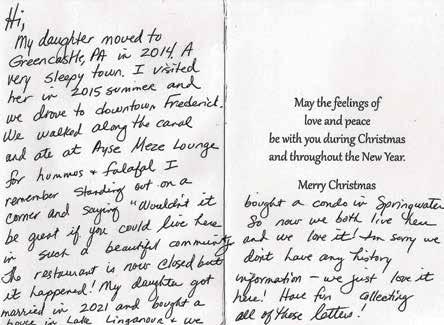 Hi,
My daughter moved to
Greencastle, PA in 2014. A
very sleepy town. I visited
her in 2015 summer and
we drove to downtown Frederick.
We walked along the canal
and ate at Ayse Meze Lounge
for hummos & falafal I
remember standing out on a
corner and saying "Wouldn't it
be great if you could live here
in such a beautiful community
The restaurant is now closed but
it happened! My daughter got
married in 2021 and bought a
house in Lake Linganour & we
May the feelings of
love and peace
be with you during Christmas
and throughout the New Year.
Merry Christmas
bought a condo in Springwater
So now we both live here
and we love it! I'm sorry we
don't have any history
information – we just love it
here! Have fun collecting
all of those letters!